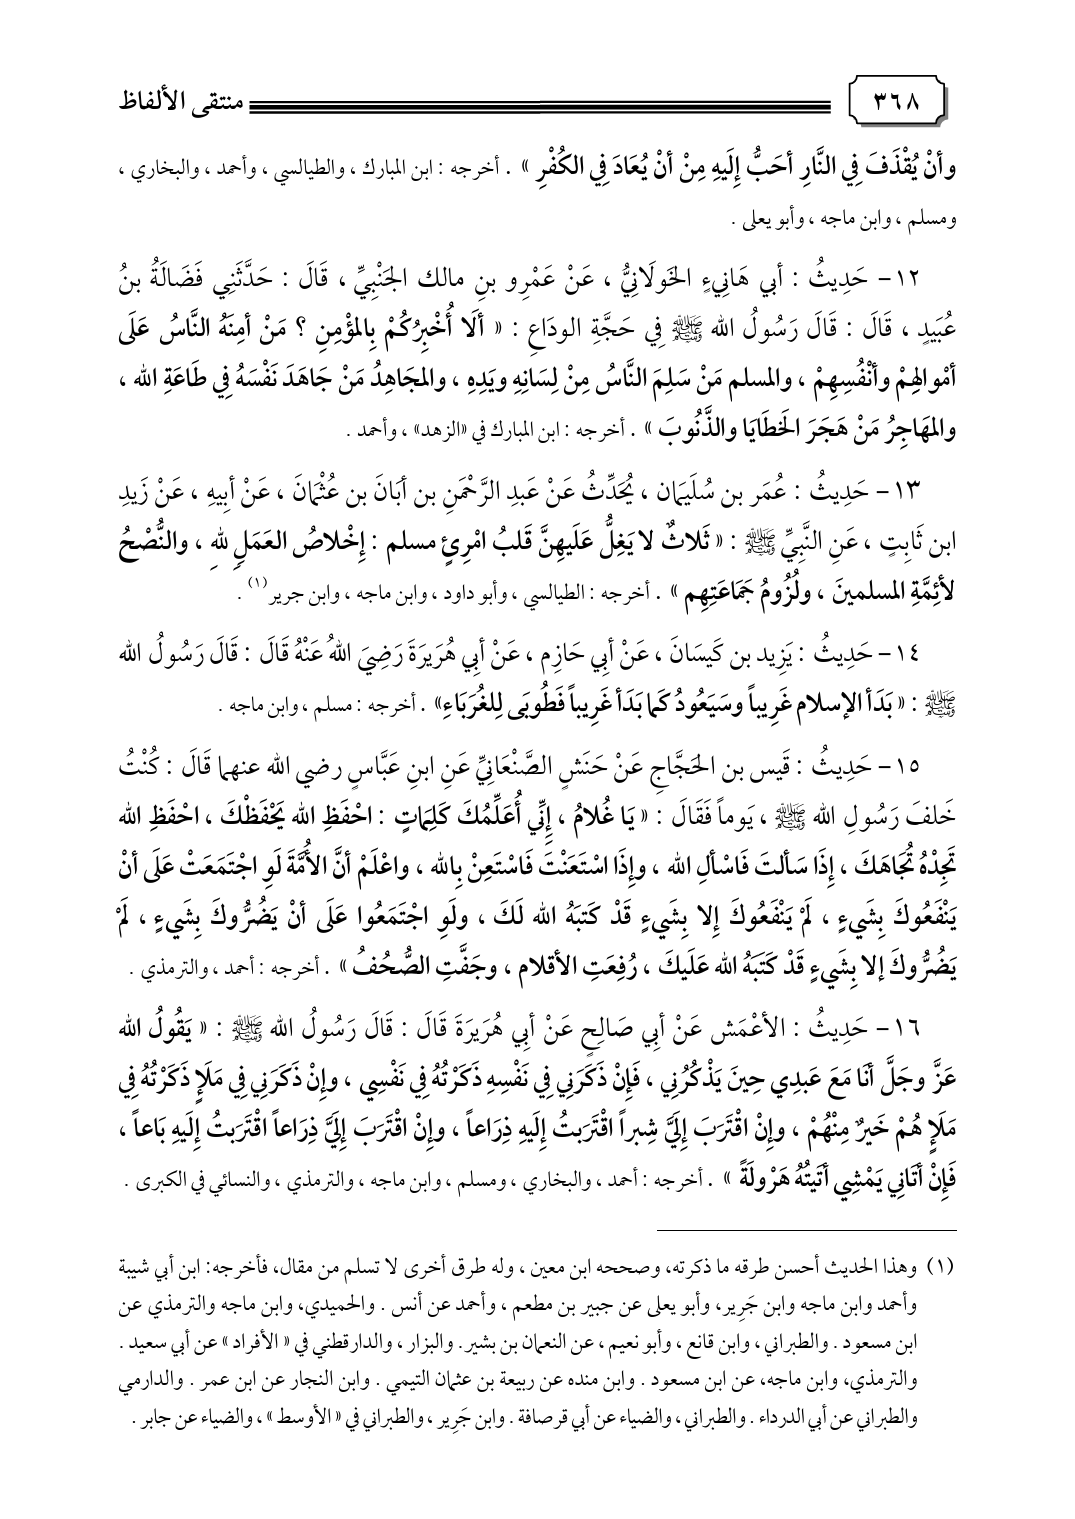 ٣٦٨ منتقى الألفاظ
وأنْ يُقْذَفَ فِي النَّارِ أحَبُّ إِلَيهِ مِنْ أنْ يُعَادَ فِي الكُفْرِ » . أخرجه : ابن المبارك ، والطيالسي ، وأحمد ، والبخاري ،
ومسلم ، وابن ماجه ، وأبو يعلى .
١٢- حَدِيثُ : أبي هَانِيءٍ الخَولَانِيُّ ، عَنْ عَمْرِو بنِ مالك الجَنْبِيِّ ، قَالَ : حَدَّثَنِي فَضَالَةُ بنُ
عُبَيدٍ ، قَالَ : قَالَ رَسُولُ الله ﷺ فِي حَجَّةِ الودَاعِ : « ألَا أُخْبِرُكُمْ بِالمؤْمِنِ ؟ مَنْ أمِنَهُ النَّاسُ عَلَى
أمْوالهِمْ وأنْفُسِهِمْ ، والمسلم مَنْ سَلِمَ النَّاسُ مِنْ لِسَانِهِ ويَدِهِ ، والمجَاهِدُ مَنْ جَاهَدَ نَفْسَهُ فِي طَاعَةِ الله ،
والمهَاجِرُ مَنْ هَجَرَ الخَطَايَا والذَّنُوبَ » . أخرجه : ابن المبارك في «الزهد» ، وأحمد .
١٣- حَدِيثُ : عُمَر بن سُلَيمَان ، يُحَدِّثُ عَنْ عَبدِ الرَّحْمَنِ بن أبَانَ بن عُثْمَانَ ، عَنْ أبِيهِ ، عَنْ زَيدِ
ابن ثَابِتٍ ، عَنِ النَّبِيِّ ﷺ : « ثَلاثٌ لا يَغِلُّ عَلَيهِنَّ قَلبُ امْرِئٍ مسلم : إخْلاصُ العَمَلِ للهِ ، والنُّصْحُ
لأئِمَّةِ المسلمينَ ، ولُزُومُ جَمَاعَتِهِم » . أخرجه : الطيالسي ، وأبو داود ، وابن ماجه ، وابن جرير(١) .
١٤- حَدِيثُ : يَزِيد بن كَيسَانَ ، عَنْ أبي حَازِم ، عَنْ أبي هُرَيرَةَ رَضِيَ اللهُ عَنْهُ قَالَ : قَالَ رَسُولُ الله
ﷺ : « بَدَأ الإسلام غَرِيباً وسَيَعُودُ كَما بَدَأ غَرِيباً فَطُوبَى لِلغُرَبَاءِ» . أخرجه : مسلم ، وابن ماجه .
١٥- حَدِيثُ : قَيس بن الحَجَّاجِ عَنْ حَنَشٍ الصَّنْعَانِيِّ عَنِ ابنِ عَبَّاسٍ رضي الله عنهما قَالَ : كُنْتُ
خَلفَ رَسُولِ الله ﷺ ، يَوماً فَقَالَ : « يَا غُلامُ ، إنِّي أُعَلِّمُكَ كَلِمَاتٍ : احْفَظِ الله يَحْفَظْكَ ، احْفَظِ الله
تَجِدْهُ تُجَاهَكَ ، إذَا سَألتَ فَاسْألِ الله ، وإذَا اسْتَعَنْتَ فَاسْتَعِنْ بِالله ، واعْلَمْ أنَّ الأُمَّةَ لَوِ اجْتَمَعَتْ عَلَى أنْ
يَنْفَعُوكَ بِشَيءٍ ، لَمْ يَنْفَعُوكَ إلا بِشَيءٍ قَدْ كَتَبَهُ الله لَكَ ، ولَوِ اجْتَمَعُوا عَلَى أنْ يَضُرُّوكَ بِشَيءٍ ، لَمْ
يَضُرُّوكَ إلا بِشَيءٍ قَدْ كَتَبَهُ الله عَلَيكَ ، رُفِعَتِ الأقلام ، وجَفَّتِ الصُّحُفُ » . أخرجه : أحمد ، والترمذي .
١٦- حَدِيثُ : الأعْمَش عَنْ أبي صَالِحٍ عَنْ أبي هُرَيرَةَ قَالَ : قَالَ رَسُولُ الله ﷺ : « يَقُولُ الله
عَزَّ وجَلَّ أنَا مَعَ عَبدِي حِينَ يَذْكُرُنِي ، فَإنْ ذَكَرَنِي فِي نَفْسِهِ ذَكَرْتُهُ فِي نَفْسِي ، وإنْ ذَكَرَنِي فِي مَلَإٍ ذَكَرْتُهُ فِي
مَلَإٍ هُمْ خَيرٌ مِنْهُمْ ، وإنْ اقْتَرَبَ إلَيَّ شِبراً اقْتَرَبتُ إلَيهِ ذِرَاعاً ، وإنْ اقْتَرَبَ إلَيَّ ذِرَاعاً اقْتَرَبتُ إلَيهِ بَاعاً ،
فَإنْ أتَانِي يَمْشِي أتَيتُهُ هَرْولَةً » . أخرجه : أحمد ، والبخاري ، ومسلم ، وابن ماجه ، والترمذي ، والنسائي في الكبرى .
(١) وهذا الحديث أحسن طرقه ما ذكرته، وصححه ابن معين ، وله طرق أخرى لا تسلم من مقال، فأخرجه: ابن أبي شيبة
وأحمد وابن ماجه وابن جَرِير، وأبو يعلى عن جبير بن مطعم ، وأحمد عن أنس . والحميدي، وابن ماجه والترمذي عن
ابن مسعود . والطبراني ، وابن قانع ، وأبو نعيم ، عن النعمان بن بشير. والبزار ، والدارقطني في « الأفراد » عن أبي سعيد .
والترمذي، وابن ماجه، عن ابن مسعود . وابن منده عن ربيعة بن عثمان التيمي . وابن النجار عن ابن عمر . والدارمي
والطبراني عن أبي الدرداء . والطبراني، والضياء عن أبي قرصافة . وابن جَرِير ، والطبراني في « الأوسط » ، والضياء عن جابر .